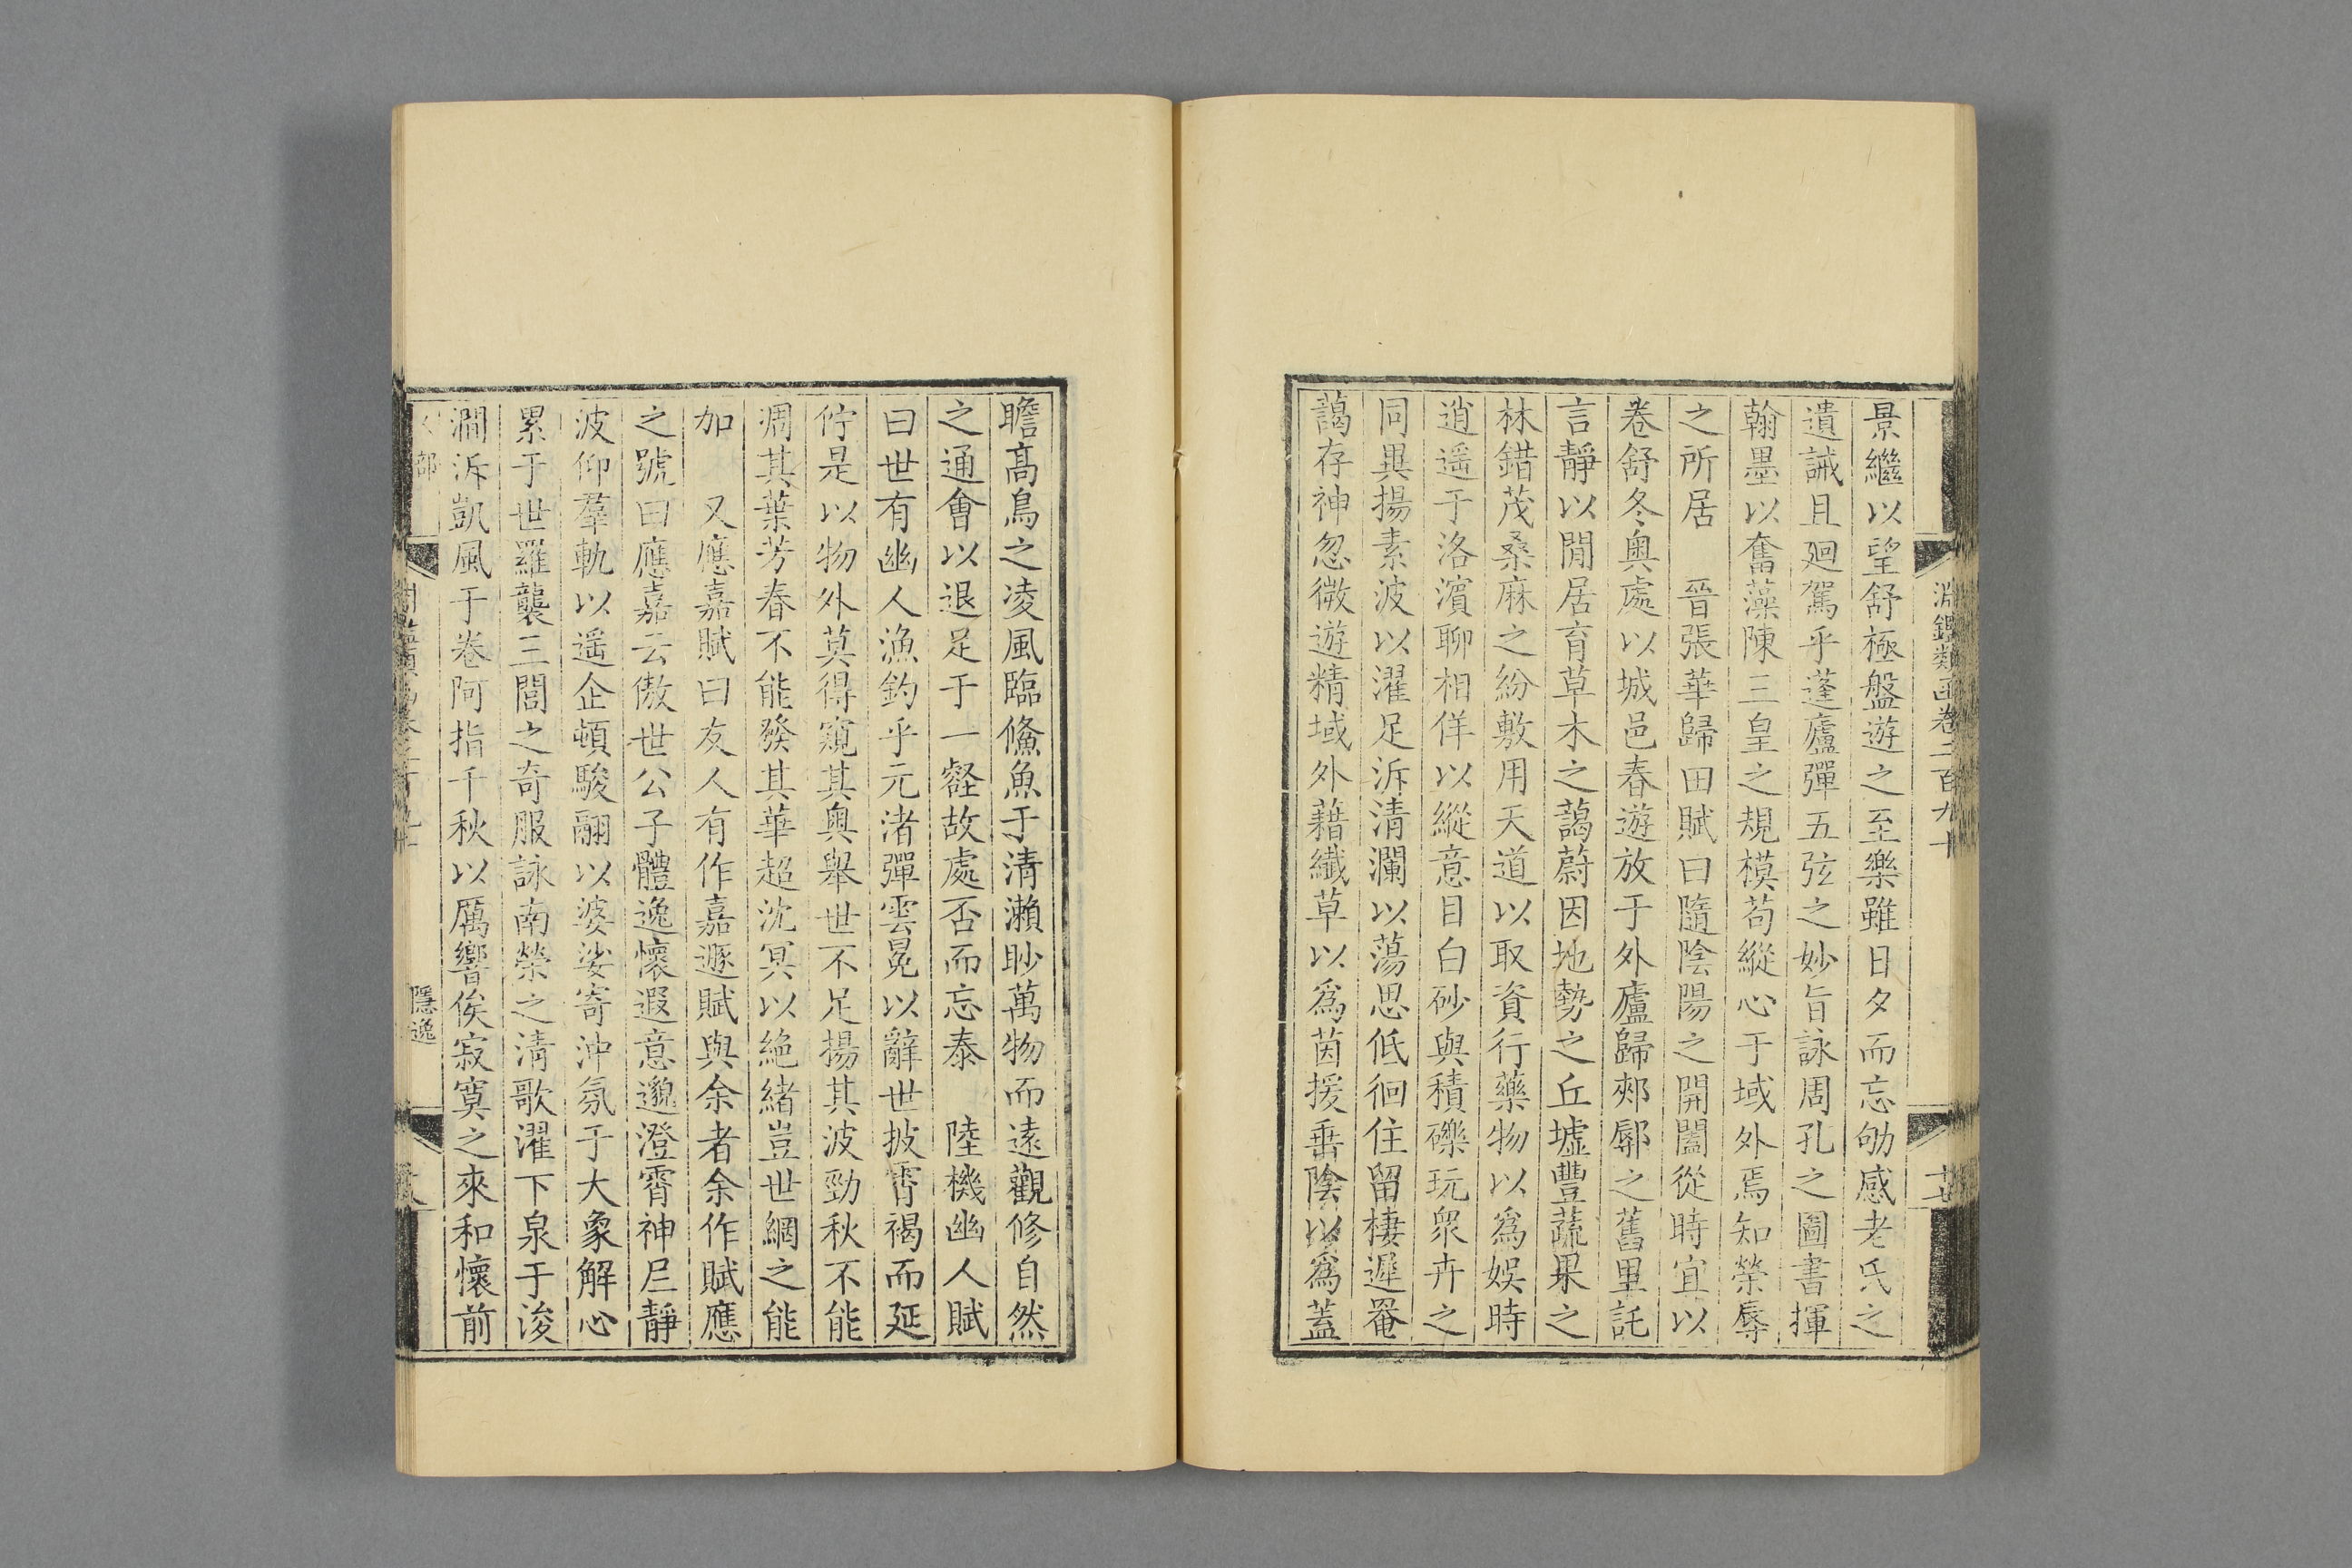 淵鑑類函卷二百九十
景繼以望舒極盤遊之至樂雖日夕而忘劬感老氏之
遺誡且迴駕乎蓬廬彈五弦之妙旨詠周孔之圖書揮
翰墨以奮藻陳三皇之規模苟縱心于域外焉知榮辱
之所居　晉張華歸田賦曰隨陰陽之開闔從時宜以
卷舒冬奧處以城邑春遊放于外廬歸郟鄏之舊里託
言靜以閒居育草木之藹蔚因地勢之丘墟豐蔬果之
林錯茂桑麻之紛敷用天道以取資行藥物以為娛時
逍遥于洛濱聊相佯以縱意目白砂與積礫玩衆卉之
同異揚素波以濯足泝清瀾以蕩思低徊住留棲遲罨
藹存神忽微遊精域外藉纖草以為茵援垂陰以為蓋
瞻高鳥之凌風臨鯈魚于清瀨眇萬物而遠觀修自然
之通會以退足于一壑故處否而忘泰　陸機幽人賦
曰世有幽人漁釣乎元渚彈雲冕以辭世披霄褐而延
佇是以物外莫得窺其奧舉世不足揚其波勁秋不能
凋其葉芳春不能發其華超沈冥以絶緒豈世網之能
加　又應嘉賦曰友人有作嘉遯賦與余者余作賦應
之號曰應嘉云傲世公子體逸懷遐意邈澄霄神凥靜
波仰羣軌以遥企頓駿翮以婆娑寄沖氛于大象解心
累于世羅襲三閭之奇服詠南榮之清歌濯下泉于浚
澗泝凱風于卷阿指千秋以厲響俟寂寞之來和懷前
部　隱逸